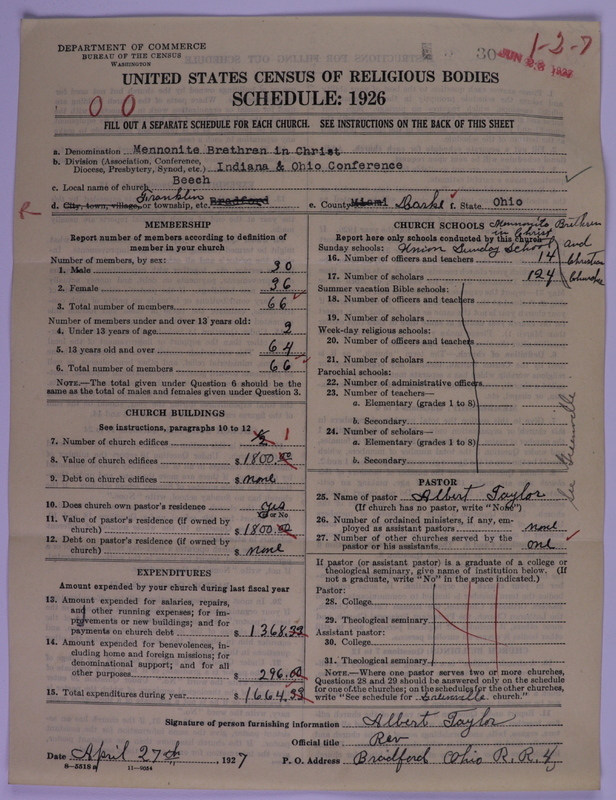 DEPARTMENT OF COMMERCE
BUREAU OF THE CENSUS
WASHINGTON
30
JUN 28 1927
1-2-7
UNITED STATES CENSUS OF RELIGIOUS BODIES
SCHEDULE: 1926
0 0
FILL OUT A SEPARATE SCHEDULE FOR EACH CHURCH. SEE INSTRUCTIONS ON THE BACK OF THIS SHEET
a. Denomination Mennonite Brethren in Christ
b. Division (Association, Conference,
Diocese, Presbytery, Synod, etc.) Indiana & Ohio Conference
c. Local name of church Beech
Franklin
R d. City, town, village, or township, etc. Bradford e. County Miami Darke f. State Ohio
MEMBERSHIP
Report number of members according to definition of
member in your church
Number of members, by sex:
1. Male 30
2. Female 36
3. Total number of members 66
Number of members under and over 13 years old:
4. Under 13 years of age 2
5. 13 years old and over 64
6. Total number of members 66
NOTE.—The total given under Question 6 should be the
same as the total of males and females given under Question 3.
CHURCH BUILDINGS
See instructions, paragraphs 10 to 12
7. Number of church edifices 1/2 1
8. Value of church edifices $ 1800.00
9. Debt on church edifices $ none
10. Does church own pastor's residence yes
Yes or No
11. Value of pastor's residence (if owned by
church) $ 1800.00
12. Debt on pastor's residence (if owned by
church) $ none
EXPENDITURES
Amount expended by your church during last fiscal year
13. Amount expended for salaries, repairs,
and other running expenses; for im-
provements or new buildings; and for
payments on church debt $ 1368.39
14. Amount expended for benevolences, in-
cluding home and foreign missions; for
denominational support; and for all
other purposes $ 296.00
15. Total expenditures during year $ 1664.39
CHURCH SCHOOLS Mennonite Brethren
in Christ
Report here only schools conducted by this church
and
Christian
Churches
Sunday schools: Union Sunday School
16. Number of officers and teachers 14
17. Number of scholars 124
Summer vacation Bible schools:
18. Number of officers and teachers
19. Number of scholars
Week-day religious schools:
20. Number of officers and teachers
21. Number of scholars
Parochial schools:
22. Number of administrative officers
23. Number of teachers—
a. Elementary (grades 1 to 8)
b. Secondary
24. Number of scholars—
a. Elementary (grades 1 to 8)
b. Secondary
See Greenville
PASTOR
25. Name of pastor Albert Taylor
(If church has no pastor, write "None")
26. Number of ordained ministers, if any, em-
ployed as assistant pastors none
27. Number of other churches served by the
pastor or his assistants one
If pastor (or assistant pastor) is a graduate of a college or
theological seminary, give name of institution below. (If
not a graduate, write "No" in the space indicated.)
Pastor:
28. College
29. Theological seminary
Assistant pastor:
30. College
31. Theological seminary
NOTE.—Where one pastor serves two or more churches,
Questions 28 and 29 should be answered only on the schedule
for one of the churches; on the schedules for the other churches,
write "See schedule for Greenville church."
Signature of person furnishing information Albert Taylor
Official title Rev
Date April 27th, 1927 P. O. Address Bradford Ohio R.R. 4
8-5518a 11-9054